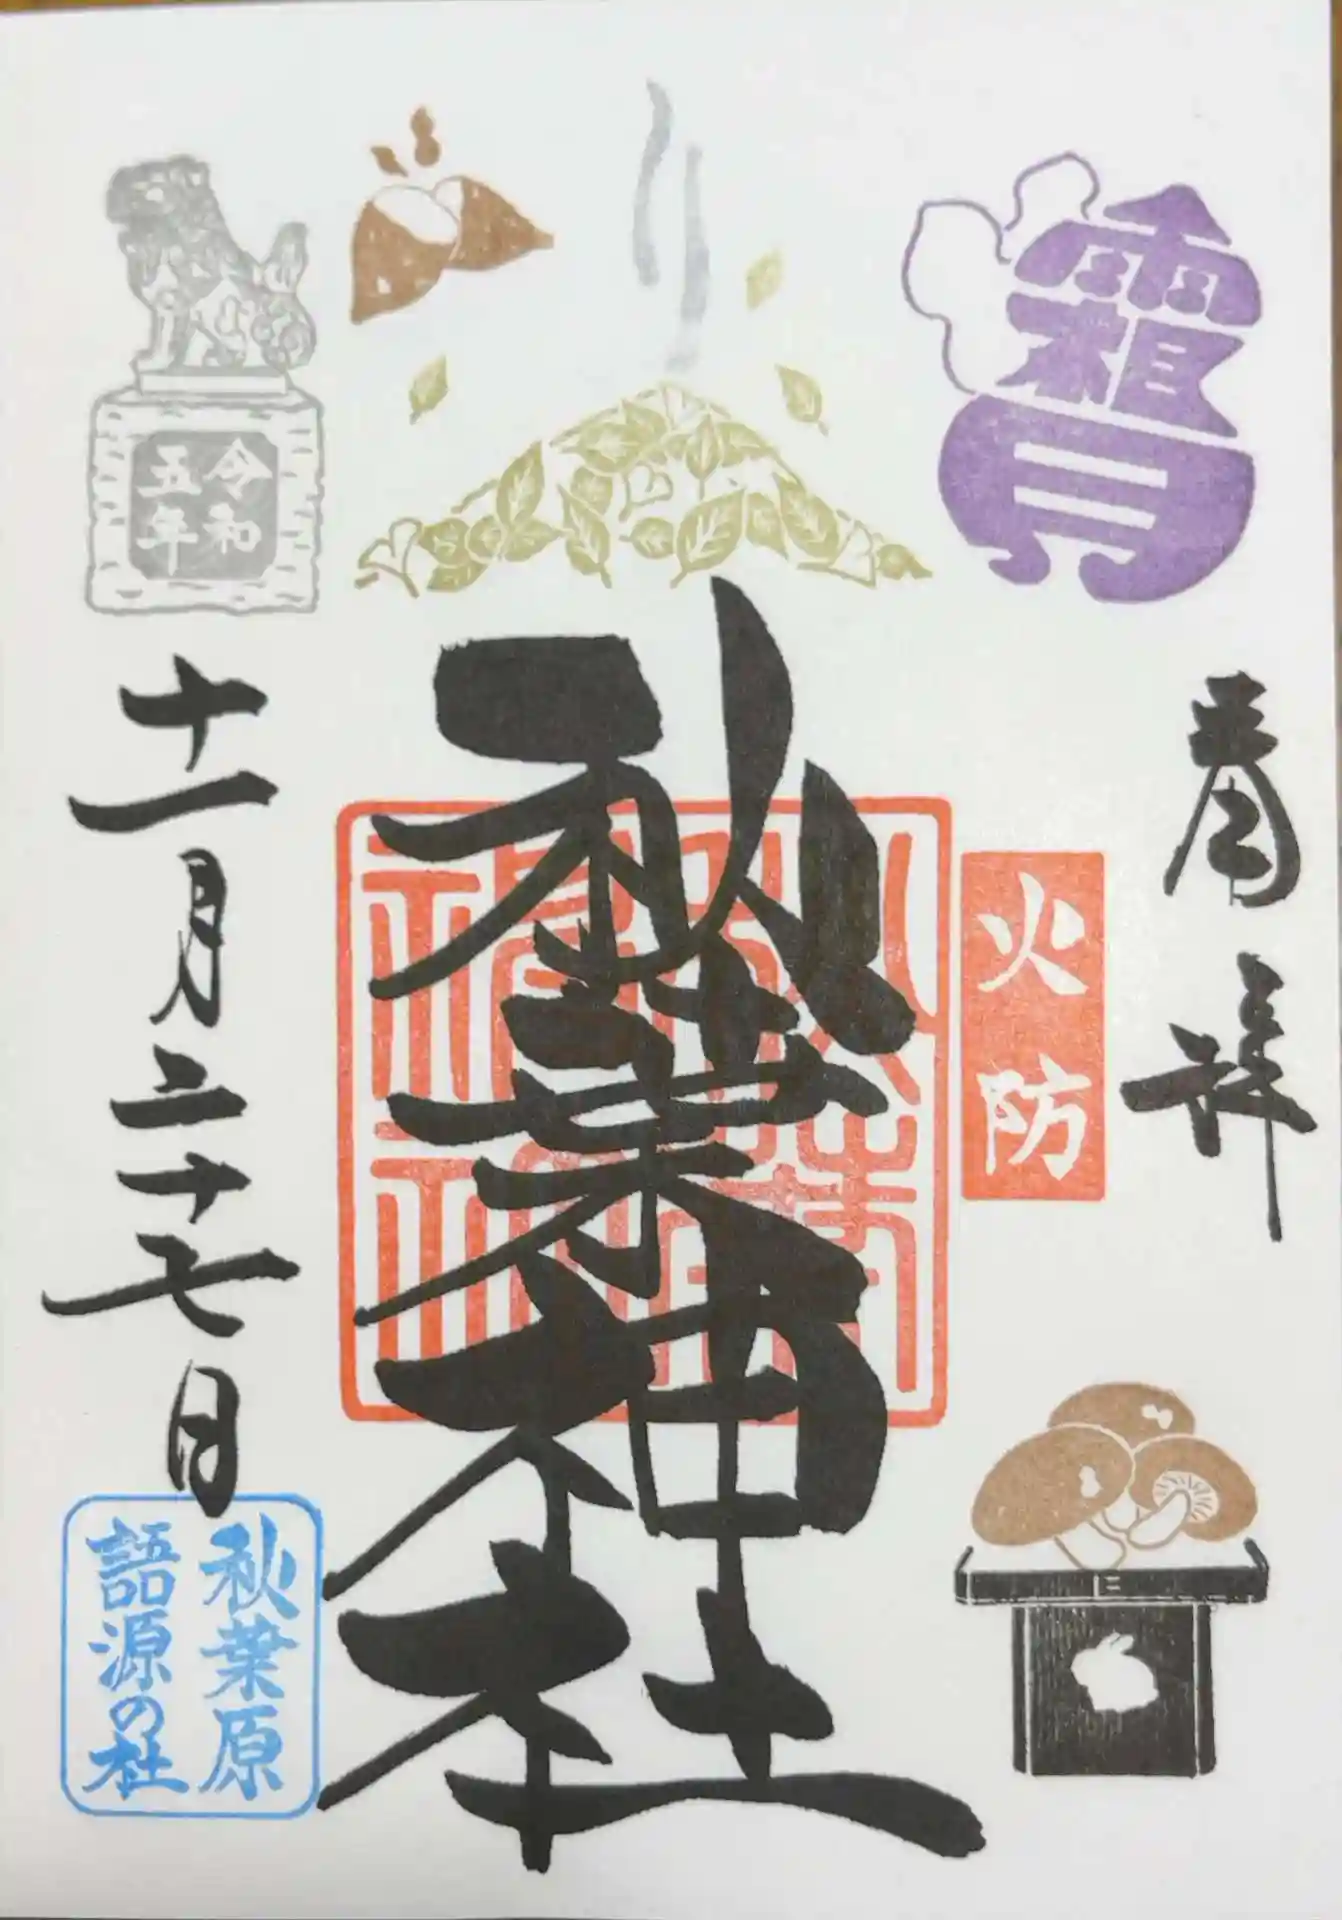 霜月
奉拝
火防
秋葉神社
令和
五年
十一月二十七日
秋葉原
語源の杜